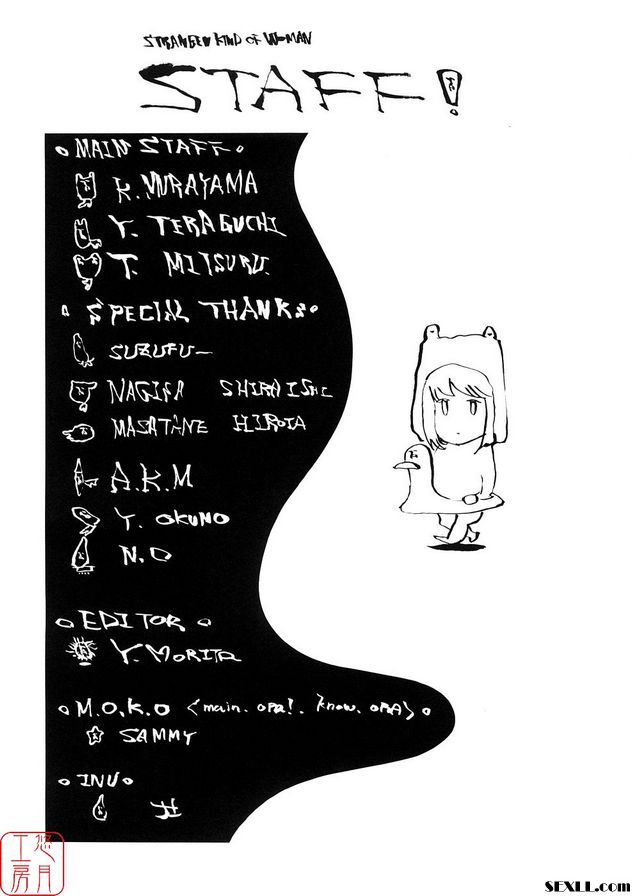 STRANGER KIND OF WOMAN
STAFF!
MAIN STAFF
K. MURAYAMA
Y. TERAGUCHI
T. MITSURU.
SPECIAL THANKS
SUZUFU—
NAGISA SHIRAISHI
MASATANE HIROTA
A.K.M
Y. OKUNO
N.O
EDITOR
Y. MORITA
M.O.K.O <main. opa!. know. OPA>
SAMMY
INU
井
悠月工房
SEXLL.com